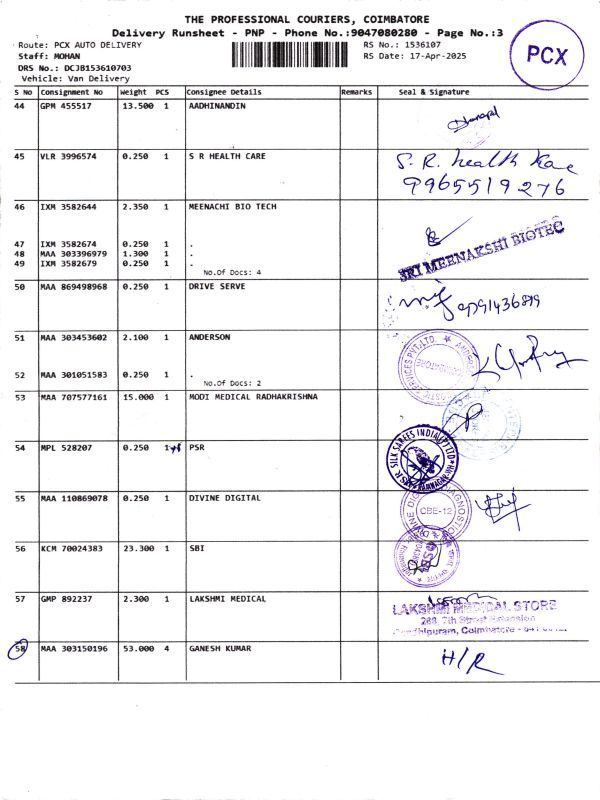 THE PROFESSIONAL COURIERS, COIMBATORE
Delivery Runsheet - PNP - Phone No.:9047080280 - Page No.:3
Route: PCX AUTO DELIVERY
RS No.: 1536107
Staff: MOHAN
RS Date: 17-Apr-2025
DRS No.: DCJB153610703
Vehicle: Van Delivery
PCX
S No Consignment No Weight PCS Consignee Details Remarks Seal & Signature
44 GPM 455517 13.500 1 AADHINANDIN
45 VLR 3996574 0.250 1 S R HEALTH CARE S. R. health Kae
9965519276
46 IXM 3582644 2.350 1 MEENACHI BIO TECH
47 IXM 3582674 0.250 1 .
48 MAA 303396979 1.300 1 .
49 IXM 3582679 0.250 1 .
No.Of Docs: 4
SRI MEENAKSHI BIOTEC
50 MAA 869498968 0.250 1 DRIVE SERVE
51 MAA 303453602 2.100 1 ANDERSON
52 MAA 301051583 0.250 1 .
No.Of Docs: 2
53 MAA 707577161 15.000 1 MODI MEDICAL RADHAKRISHNA
54 MPL 528207 0.250 1 PSR
SILK SAREES INDIA
55 MAA 110869078 0.250 1 DIVINE DIGITAL
CBE-12
56 KCM 70024383 23.300 1 SBI
57 GMP 892237 2.300 1 LAKSHMI MEDICAL
LAKSHMI MEDICAL STORE
288, 7th Street Extension
Gandhipuram, Coimbatore -
58 MAA 303150196 53.000 4 GANESH KUMAR H/R